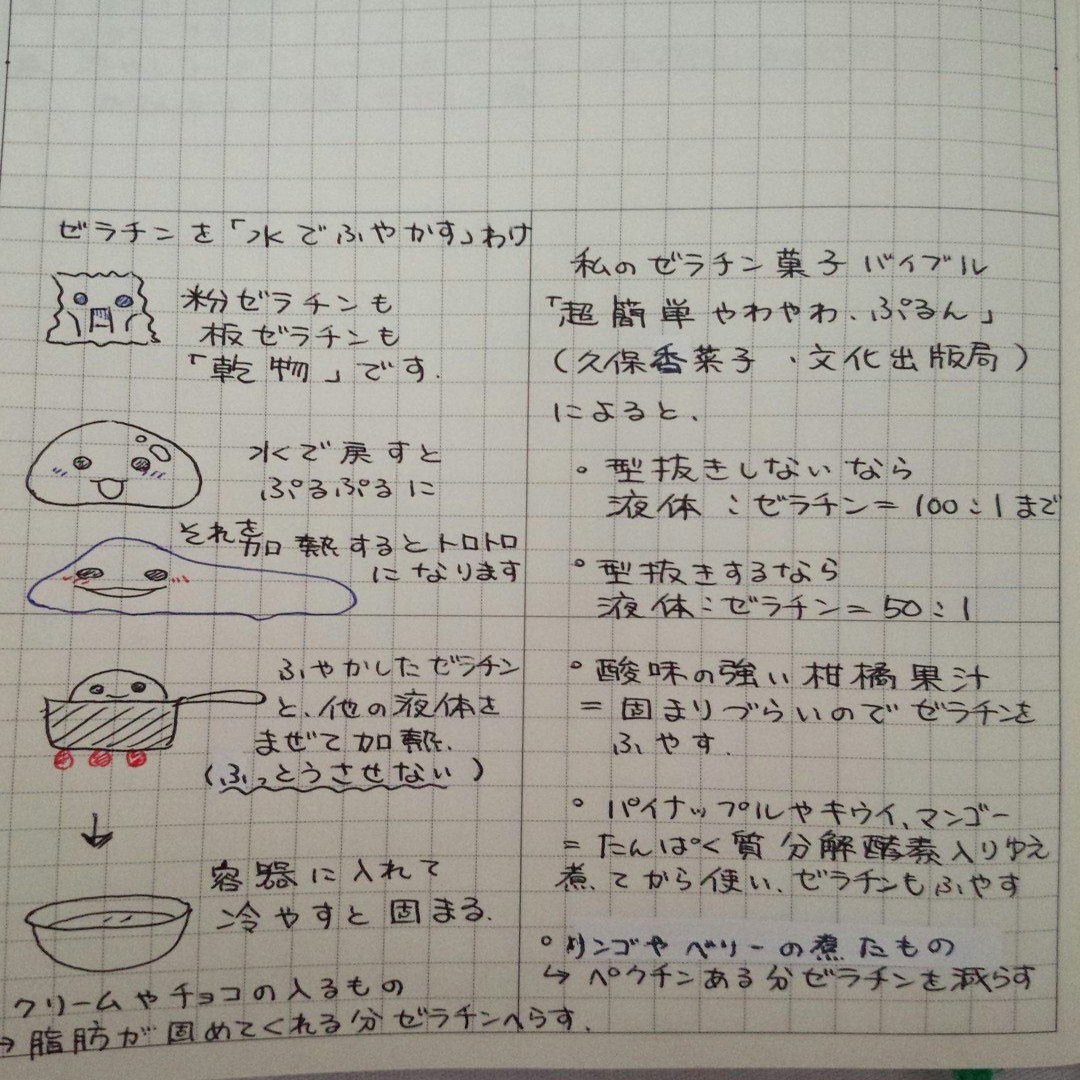 ゼラチンを「水でふやかす」わけ
粉ゼラチンも
板ゼラチンも
「乾物」です.
水で戻すと
ぷるぷるに
それを加熱するとトロトロ
になります
ふやかしたゼラチン
と、他の液体を
まぜて加熱.
(ふっとうさせない)
容器に入れて
冷やすと固まる.
クリームやチョコの入るもの
→脂肪が固めてくれる分ゼラチンへらす.
私のゼラチン菓子バイブル
「超簡単やわやわ、ぷるん」
(久保香菜子、文化出版局)
によると、
・型抜きしないなら
液体:ゼラチン=100:1まで
・型抜きするなら
液体:ゼラチン=50:1
・酸味の強い柑橘果汁
=固まりづらいのでゼラチンを
ふやす.
・パイナップルやキウイ、マンゴー
=たんぱく質分解酵素入りゆえ
煮てから使い、ゼラチンもふやす
・リンゴやベリーの煮たもの
↳ペクチンある分ゼラチンを減らす